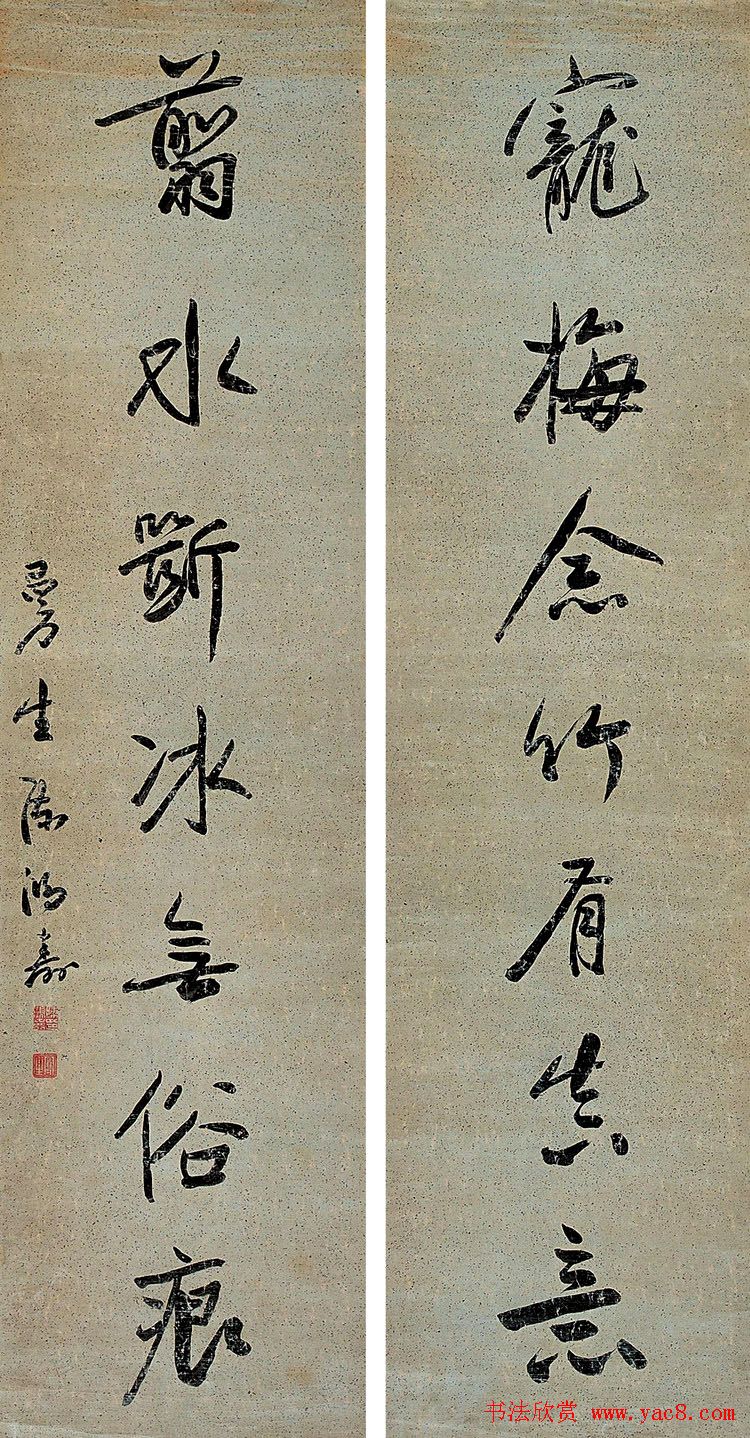 寵梅念竹有真意
翦水斷冰無俗痕
曼生陳鴻壽
书法欣赏 www.yac8.com